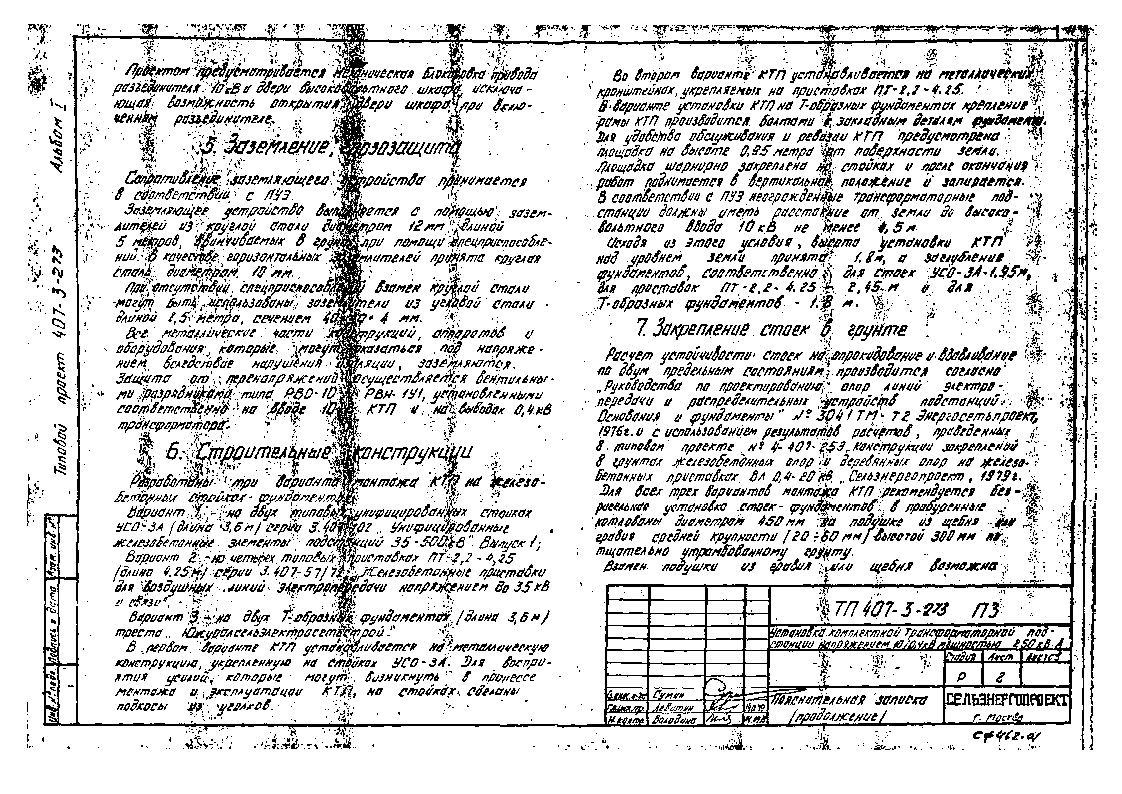 Проектом предусматривается механическая блокировка привода
разъединителя 10 кВ и двери высоковольтного шкафа, исключа-
ющая возможность открытия двери шкафа при вклю-
ченном разъединителе.
5. Заземление, грозозащита
Сопротивление заземляющего устройства принимается
в соответствии с ПУЭ.
Заземляющее устройство выполняется с помощью зазем-
лителей из круглой стали диаметром 12 мм длиной
5 метров, ввинчиваемых в грунт при помощи спецприспособле-
ний. В качестве горизонтальных заземлителей принята круглая
сталь диаметром 10 мм.
При отсутствии спецприспособлений взамен круглой стали
могут быть использованы заземлители из угловой стали
длиной 2,5 метра, сечением 40 4 мм.
Все металлические части конструкций, аппаратов и
оборудования, которые могут оказаться под напряже-
нием вследствие нарушения изоляции, заземляются.
Защита от перенапряжений осуществляется вентильны-
ми разрядниками типа РВО-10 и РВН-1У1, установленными
соответственно на вводе 10 кВ КТП и на выводах 0,4 кВ
трансформатора.
6. Строительные конструкции
Разработаны три варианта монтажа КТП на железо-
бетонных стойках-фундаментах:
Вариант 1 - на двух типовых унифицированных стойках
УСО-3А (длина 3,6 м) серии „Унифицированные
железобетонные элементы подстанций 35-500 кВ" Выпуск 1;
Вариант 2 - на четырех типовых приставках ПТ-2,2-4,25
(длина 4,25 м) серии 3.407-57/72 „Железобетонные приставки
для воздушных линий электропередачи напряжением до 35 кВ
и связи".
Вариант 3 - на двух Т-образных фундаментах (длина 3,6 м)
треста „Южуралсельэлектросетьстрой".
В первом варианте КТП устанавливается на металлическую
конструкцию, укрепленную на стойках УСО-3А. Для воспри-
ятия усилий, которые могут возникнуть в процессе
монтажа и эксплуатации КТП, на стойках сделаны
подкосы из уголков.
Во втором варианте КТП устанавливается на металлических
кронштейнах, укрепляемых на приставках ПТ-2,2-4.25.
В варианте установки КТП на Т-образных фундаментах крепление
рамы КТП производится болтами к закладным деталям фундамента.
Для удобства обслуживания и ревизии КТП предусмотрена
площадка на высоте 0,95 метра от поверхности земли.
Площадка шарнирно закреплена на стойках и после окончания
работ поднимается в вертикальное положение и запирается.
В соответствии с ПУЭ неогражденные трансформаторные под-
станции должны иметь расстояние от земли до высоко-
вольтного ввода 10 кВ не менее 4,5 м.
Исходя из этого условия, высота установки КТП
над уровнем земли принята 1,8 м, а заглубление
фундаментов, соответственно, для стоек УСО-3А-1,95м,
для приставок ПТ-2,2-4.25 - 2,45 м и для
Т-образных фундаментов - 1,8 м.
7. Закрепление стоек в грунте
Расчет устойчивости стоек на опрокидование и вдавливание
по двум предельным состояниям производится согласно
„Руководства по проектированию опор линий электро-
передачи и распределительных устройств подстанций.
Основания и фундаменты" № 3041 ТМ-Т2 Энергосетьпроект,
1976г. и с использованием результатов расчетов, приведенных
в типовом проекте № 4-407-253 „Конструкции закреплений
в грунтах железобетонных опор и деревянных опор на железо-
бетонных приставках ВЛ 0,4-20 кВ" Сельэнергопроект, 1979г.
Для всех трех вариантов монтажа КТП рекомендуется без-
ригельная установка стоек-фундаментов в пробуренные
котлованы диаметром 450 мм на подушке из щебня или
гравия средней крупности (20÷60 мм) высотой 300 мм по
тщательно утрамбованному грунту.
Взамен подушки из гравия или щебня возможна
Типовой проект 407-3-273 Альбом I
Инв.№подл. Подпись и дата Взам.инв.№
ТП 407-3-273 ПЗ
Установка комплектной трансформаторной под-
станции напряжением 10/0,4кВ мощностью 250 кВ·А
Стадия Лист Листов
Р 2
Пояснительная записка
(продолжение)
СЕЛЬЭНЕРГОПРОЕКТ
г. Москва
Сумин
Левитин
Н.контр. Володина